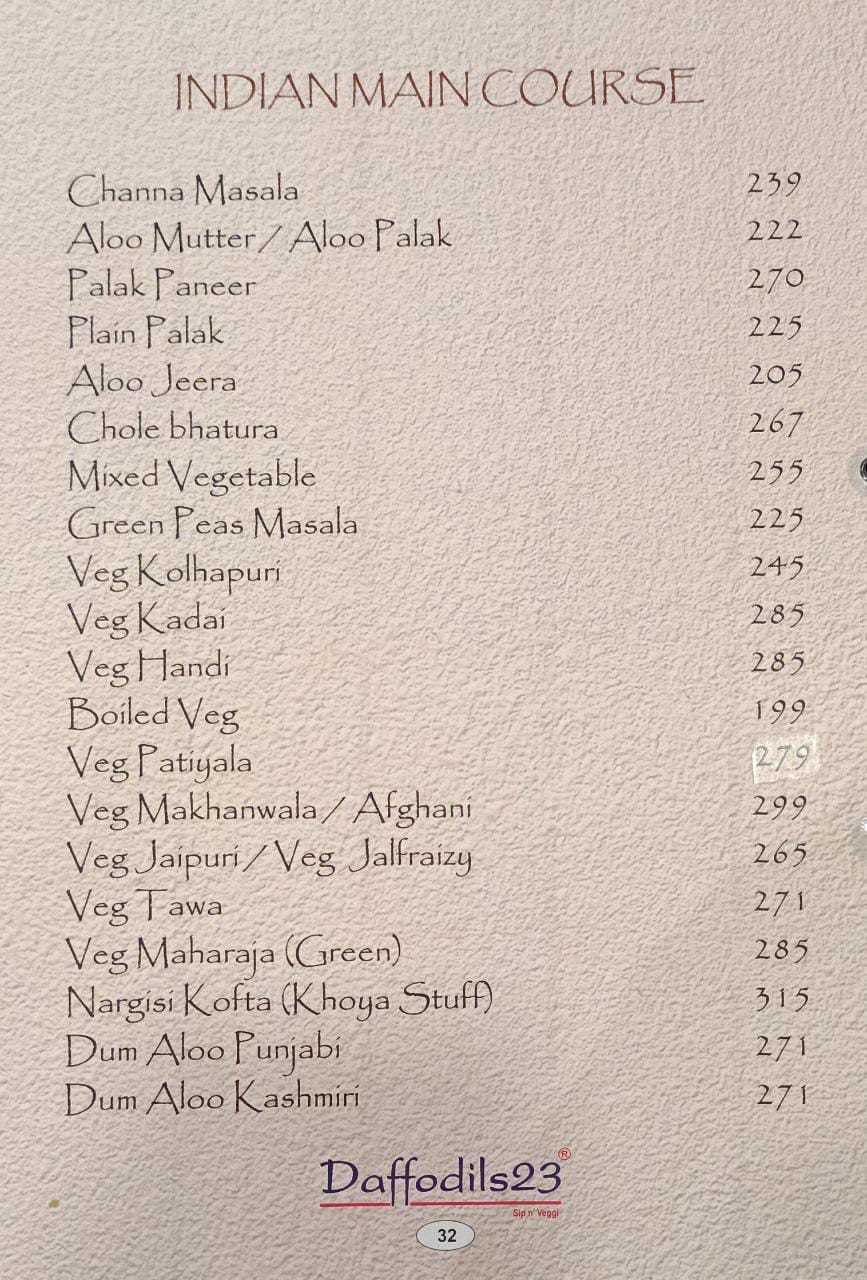 INDIAN MAIN COURSE
Channa Masala 239
Aloo Mutter / Aloo Palak 222
Palak Paneer 270
Plain Palak 225
Aloo Jeera 205
Chole bhatura 267
Mixed Vegetable 255
Green Peas Masala 225
Veg Kolhapuri 245
Veg Kadai 285
Veg Handi 285
Boiled Veg 199
Veg Patiyala 279
Veg Makhanwala / Afghani 299
Veg Jaipuri / Veg Jalfraizy 265
Veg Tawa 271
Veg Maharaja (Green) 285
Nargisi Kofta (Khoya Stuff) 315
Dum Aloo Punjabi 271
Dum Aloo Kashmiri 271
Daffodils23®
Sip n' Veggi
32